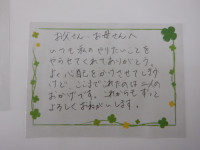 お父さん、お母さんへ
いつも私のやりたいことを
やらせてくれてありがとう。
よく心配をかけさせてしまう
けど、ここまでこれたのは二人の
おかげです。これからもずっと
よろしくおねがいします。